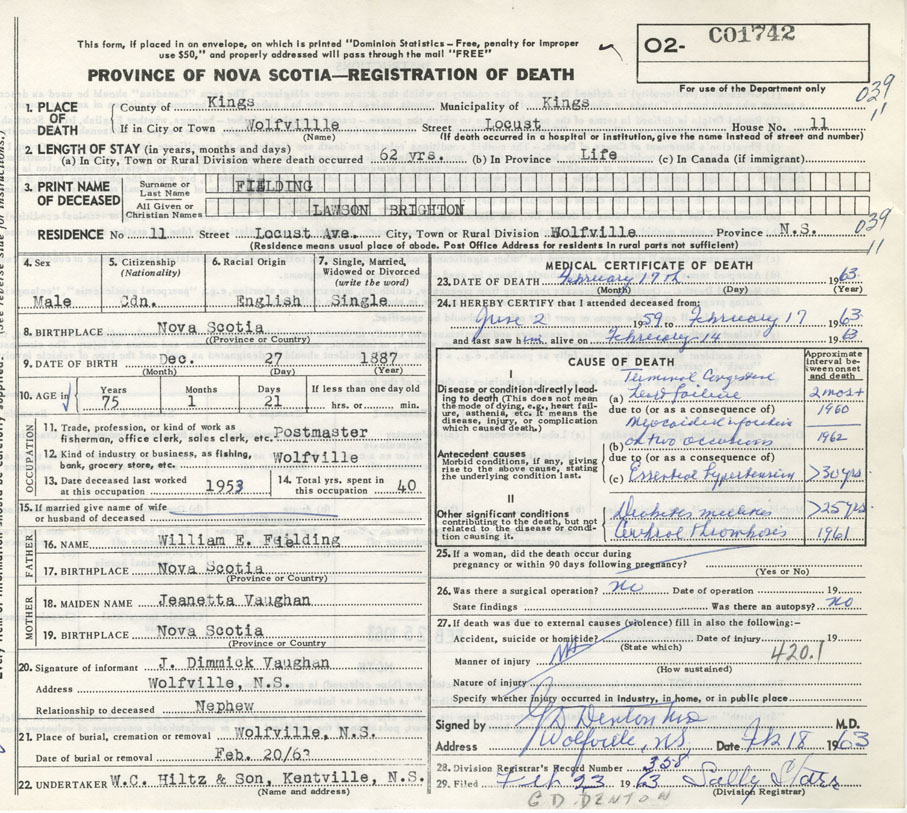 This form, if placed in an envelope, on which is printed "Dominion Statistics – Free, penalty for improper
use $50," and properly addressed will pass through the mail "FREE"
O2- CO1742
For use of the Department only
PROVINCE OF NOVA SCOTIA—REGISTRATION OF DEATH
039
11
1. PLACE OF DEATH
County of Kings Municipality of Kings
If in City or Town Wolfvillle Street Locust House No. 11
(Name) (If death occurred in a hospital or institution, give the name instead of street and number)
2. LENGTH OF STAY (in years, months and days)
(a) In City, Town or Rural Division where death occurred 62 yrs. (b) In Province Life (c) In Canada (if immigrant)
3. PRINT NAME OF DECEASED
Surname or Last Name FIELDING
All Given or Christian Names LAWSON BRIGHTON
039
11
RESIDENCE No 11 Street Locust Ave. City, Town or Rural Division Wolfville Province N.S.
(Residence means usual place of abode. Post Office Address for residents in rural parts not sufficient)
4. Sex Male
5. Citizenship (Nationality) Cdn.
6. Racial Origin English
7. Single, Married, Widowed or Divorced (write the word) Single
8. BIRTHPLACE Nova Scotia
((Province or Country)
9. DATE OF BIRTH Dec. 27 1887
(Month) (Day) (Year)
10. AGE in Years 75 Months 1 Days 21 If less than one day old hrs. or min.
OCCUPATION
11. Trade, profession, or kind of work as
fisherman, office clerk, sales clerk, etc. Postmaster
12. Kind of industry or business, as fishing,
bank, grocery store, etc. Wolfville
13. Date deceased last worked at this occupation 1953
14. Total yrs. spent in this occupation 40
15. If married give name of wife
or husband of deceased
FATHER
16. NAME William E. Fielding
17. BIRTHPLACE Nova Scotia
(Province or Country)
MOTHER
18. MAIDEN NAME Jeanetta Vaughan
19. BIRTHPLACE Nova Scotia
(Province or Country)
20. Signature of informant J. Dimmick Vaughan
Address Wolfville, N.S.
Relationship to deceased Nephew
21. Place of burial, cremation or removal Wolfville, N.S.
Date of burial or removal Feb. 20/63
22. UNDERTAKER W.C. Hiltz & Son, Kentville, N.S.
(Name and address)
MEDICAL CERTIFICATE OF DEATH
23. DATE OF DEATH February 17th 1963
(Month) (Day) (Year)
24. I HEREBY CERTIFY that I attended deceased from:
June 2 1959 to February 17 1963
and last saw him alive on February 14 1963
CAUSE OF DEATH
Approximate interval between onset and death
I
Disease or condition directly leading to death (This does not mean the mode of dying, e.g., heart failure, asthenia, etc. It means the disease, injury, or complication which caused death.)
Terminal Congested
(a) Heart Failure 2 mos+
due to (or as a consequence of) 1960
Antecedent causes
Morbid conditions, if any, giving rise to the above cause, stating the underlying condition last.
Myocardial infarction
(b) on two occasions 1962
due to (or as a consequence of)
(c) Essential Hypertension >30 yrs.
II
Other significant conditions
contributing to the death, but not related to the disease or condition causing it.
Diabetes mellitus >25 yrs.
Cerebral Thrombosis 1961
25. If a woman, did the death occur during
pregnancy or within 90 days following pregnancy?
(Yes or No)
26. Was there a surgical operation? No Date of operation 19
State findings Was there an autopsy? No
27. If death was due to external causes (violence) fill in also the following:–
Accident, suicide or homicide? Date of injury 19
(State which)
NA
420.1
Manner of injury
(How sustained)
Nature of injury
Specify whether injury occurred in industry, in home, or in public place
Signed by GD Denton MD M.D.
Address Wolfville, NS Date Feb 18 1963
28. Division Registrar's Record Number 358
29. Filed Feb 23 1963 Sally
(Division Registrar)
G.D. DENTON